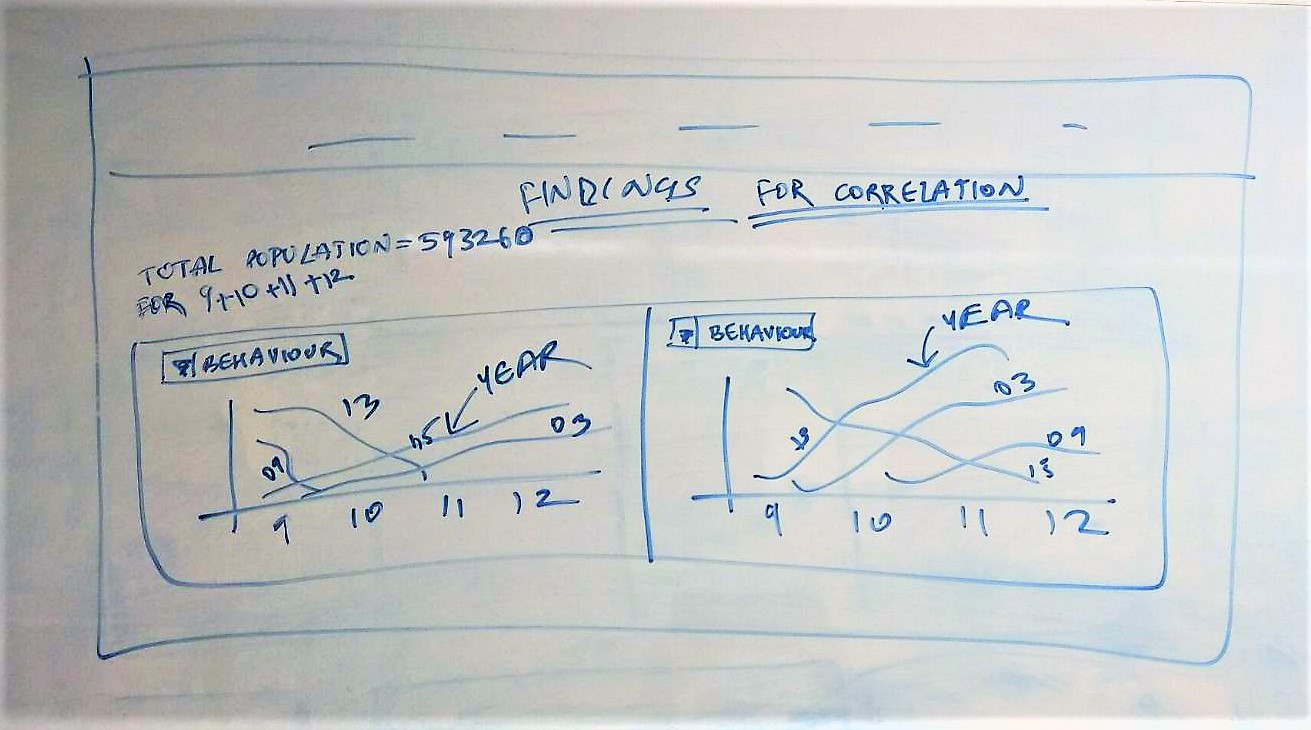 FINDINGS FOR CORRELATION
TOTAL POPULATION = 593260
FOR 9+10+11+12
BEHAVIOUR
YEAR
13
03
09
9 10 11 12
BEHAVIOUR
YEAR
03
09
13
9 10 11 12